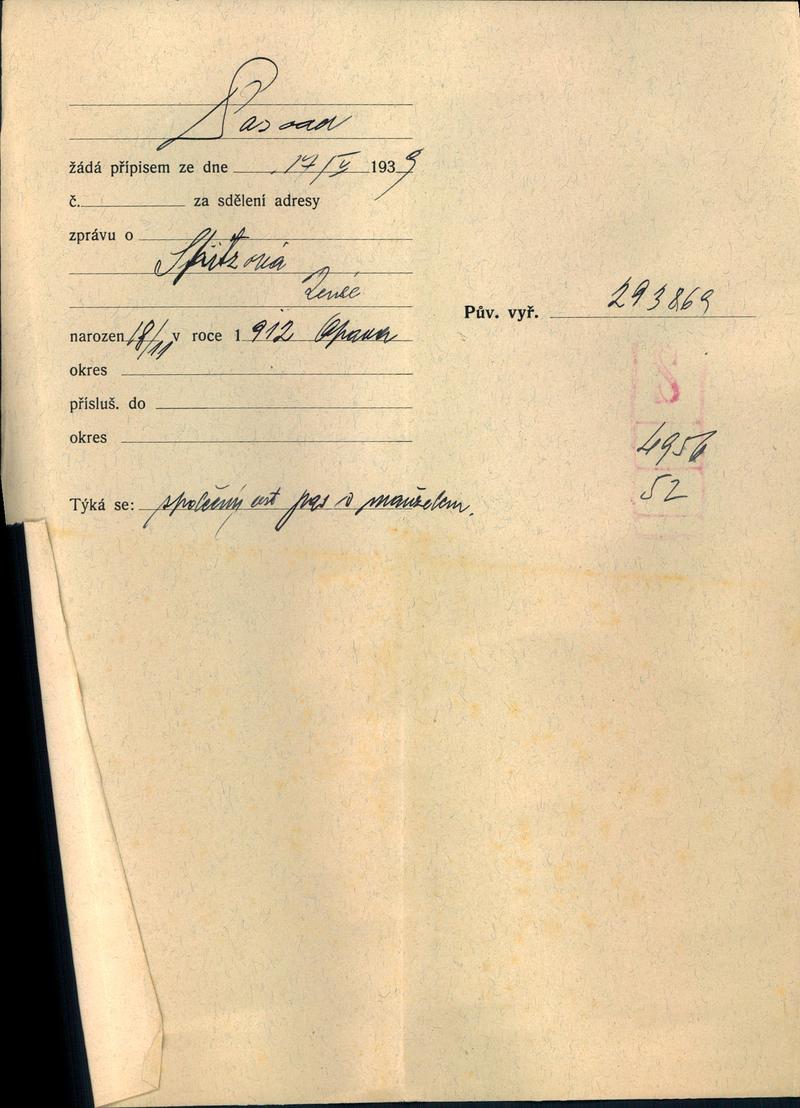 Pasodd
žádá přípisem ze dne 17/V 1939
č. za sdělení adresy
zprávu o
Spitzová
Renée
Pův. vyř. 293869
narozen 18/11 v roce 1912 Opava
okres
přísluš. do
okres
8
4956
52
Týká se: společný pas s manželem.